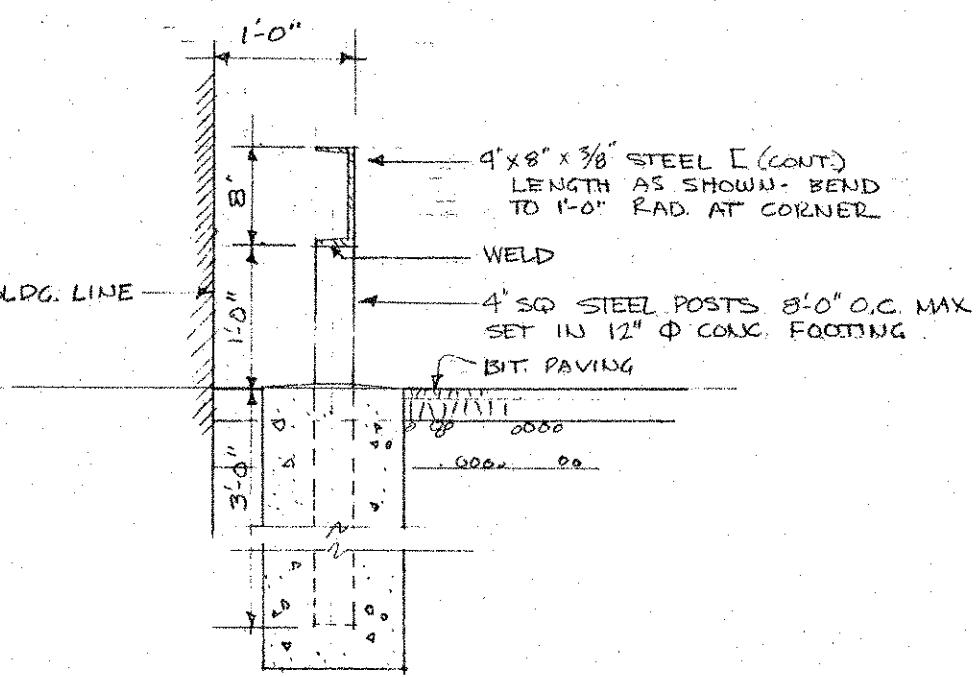 1'-0"
4" x 8" x 3/8" STEEL [ (CONT.)
LENGTH AS SHOWN - BEND
TO 1'-0" RAD. AT CORNER
8"
WELD
BLDG. LINE
1'-0"
4" SQ STEEL POSTS 8'-0" O.C. MAX
SET IN 12" Φ CONC. FOOTING
BIT. PAVING
3'-0"